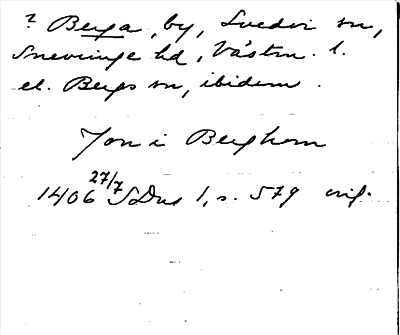 ? Berga, by, Svedvi sn,
Snevringe hd, Västm. l.
el. Bergs sn, ibidem.
Jon i Berghom
1406 27/7 SDns 1, s. 579 orig.